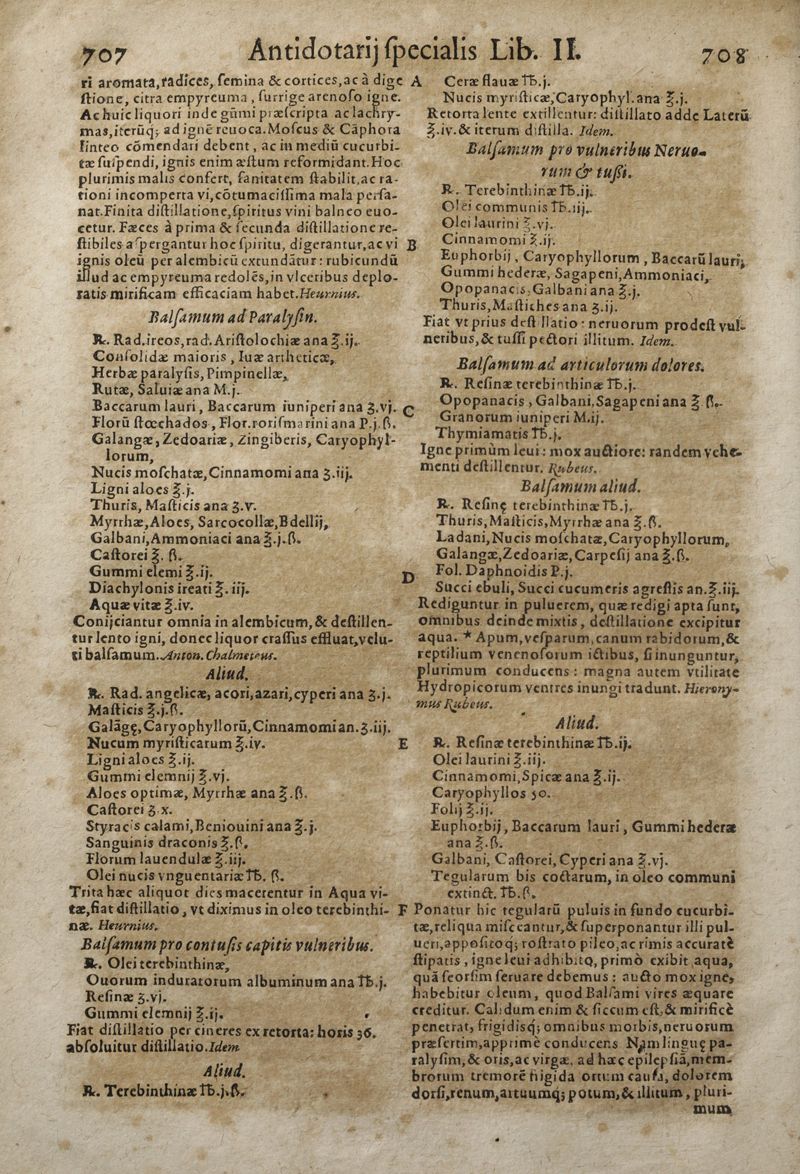 707
Antidotarij ſpecialis Lib. II.
708
ri aromata, radices, ſemina & cortices, ac à dige
ſtione, citra empyreuma, ſurrige arenoſo igne.
Ac huic liquori inde gūmi præſcripta ac lachry-
mas, iterūq; ad ignē reuoca. Moſcus & Cāphora
linteo cōmendari debent, ac in mediū cucurbi-
tæ ſuſpendi, ignis enim æſtum reformidant. Hoc
plurimis malis confert, ſanitatem ſtabilit, ac ra-
tioni incomperta vi, cōtumaciſſima mala perſa-
nat. Finita diſtillatione, ſpiritus vini balneo euo-
cetur. Fæces à prima & ſecunda diſtillatione re-
ſtibiles aſpergantur hoc ſpiritu, digerantur, ac vi
ignis oleū per alembicū extundātur: rubicundū
illud ac empyreuma redolēs, in vlceribus deplo-
ratis mirificam efficaciam habet. Heurnius.
Balſamum ad Paralyſin.
℞. Rad. ireos, rad. Ariſtolochiæ ana ℥.ij.
Conſolidæ maioris, Iuæ artheticæ,
Herbæ paralyſis, Pimpinellæ,
Rutæ, Saluiæ ana M.j.
Baccarum lauri, Baccarum iuniperi ana ʒ.vj.
Florū ſtœchados, Flor. roriſmarini ana P.j.ß.
Galangæ, Zedoariæ, Zingiberis, Caryophyl-
lorum,
Nucis moſchatæ, Cinnamomi ana ʒ.iij.
Ligni aloes ℥.j.
Thuris, Maſticis ana ʒ.v.
Myrrhæ, Aloes, Sarcocollæ, Bdellij,
Galbani, Ammoniaci ana ℥.j.ß.
Caſtorei ℥.ß.
Gummi elemi ℥.ij.
Diachylonis ireati ℥.iij.
Aquæ vitæ ℥.iv.
Conijciantur omnia in alembicum, & deſtillen-
tur lento igni, donec liquor craſſus effluat, velu-
ti balſamum. Anton. Chalmeteus.
Aliud.
℞. Rad. angelicæ, acori, azari, cyperi ana ʒ.j.
Maſticis ℥.j.ß.
Galāgę, Caryophyllorū, Cinnamomi an. ʒ.iij.
Nucum myriſticarum ℥.iv.
Ligni aloes ℥.ij.
Gummi elemnij ℥.vj.
Aloes optimæ, Myrrhæ ana ℥.ß.
Caſtorei ʒ.x.
Styracis calami, Beniouini ana ℥.j.
Sanguinis draconis ℥.ß.
Florum lauendulæ ℥.iij.
Olei nucis vnguentariæ ℔.ß.
Trita hæc aliquot dies macerentur in Aqua vi-
tæ, fiat diſtillatio, vt diximus in oleo terebinthi-
næ. Heurnius.
Balſamum pro contuſis capitis vulneribus.
℞. Olei terebinthinæ,
Ouorum induratorum albuminum ana ℔.j.
Reſinæ ʒ.vj.
Gummi elemnij ℥.ij.
Fiat diſtillatio per cineres ex retorta: horis 36.
abſoluitur diſtillatio. Idem
Aliud.
℞. Terebinthinæ ℔.j.ß.
A
B
C
D
E
F
Ceræ flauæ ℔.j.
Nucis myriſticæ, Caryophyl. ana ℥.j.
Retorta lente extillentur: diſtillato adde Laterū
℥.iv. & iterum diſtilla. Idem.
Balſamum pro vulneribus Neruo-
rum & tuſſi.
℞. Terebinthinæ ℔.ij.
Olei communis ℔.iij.
Olei laurini ℥.vj.
Cinnamomi ℥.ij.
Euphorbij, Caryophyllorum, Baccarū lauri,
Gummi hederæ, Sagapeni, Ammoniaci,
Opopanacis, Galbani ana ℥.j.
Thuris, Maſtiches ana ʒ.ij.
Fiat vt prius deſtillatio: neruorum prodeſt vul-
neribus, & tuſſi pectori illitum. Idem.
Balſamum ad articulorum dolores.
℞. Reſinæ terebinthinæ ℔.j.
Opopanacis, Galbani, Sagapeni ana ℥ ß.
Granorum iuniperi M.ij.
Thymiamatis ℔.j.
Igne primùm leui: mox auctiore: tandem vehe-
menti deſtillentur. Rubeus.
Balſamum aliud.
℞. Reſinę terebinthinæ ℔.j.
Thuris, Maſticis, Myrrhæ ana ℥.ß.
Ladani, Nucis moſchatæ, Caryophyllorum,
Galangæ, Zedoariæ, Carpeſij ana ℥.ß.
Fol. Daphnoidis P.j.
Succi ebuli, Succi cucumeris agreſtis an. ℥.iij.
Rediguntur in puluerem, quæ redigi apta ſunt,
omnibus deinde mixtis, deſtillatione excipitur
aqua. * Apum, veſparum, canum rabidorum, &
reptilium venenoſorum ictibus, ſi inunguntur,
plurimum conducens: magna autem vtilitate
Hydropicorum ventres inungi tradunt. Hierony-
mus Rubeus.
Aliud.
℞. Reſinæ terebinthinæ ℔.ij.
Olei laurini ℥.iij.
Cinnamomi, Spicæ ana ℥.ij.
Caryophyllos 30.
Folij ℥.ij.
Euphorbij, Baccarum lauri, Gummi hederæ
ana ℥.ß.
Galbani, Caſtorei, Cyperi ana ℥.vj.
Tegularum bis coctarum, in oleo communi
extinct. ℔.ß.
Ponatur hic tegularū puluis in fundo cucurbi-
tæ, reliqua miſceantur, & ſuperponantur illi pul-
ueri, appoſitoq; roſtrato pileo, ac rimis accuratè
ſtipatis, igne leui adhibito, primò exibit aqua,
quā ſeorſim ſeruare debemus: aucto mox igne,
habebitur oleum, quod Balſami vires æquare
creditur. Calidum enim & ſiccum eſt, & mirificè
penetrat, frigidisq; omnibus morbis, neruorum
præſertim, apprimè conducens. Nam linguę pa-
ralyſim, & oris, ac virgæ, ad hæc epilepſiā, mem-
brorum tremorē frigida ortum cauſa, dolorem
dorſi, renum, artuumq; potum, & illitum, pluri-
mum